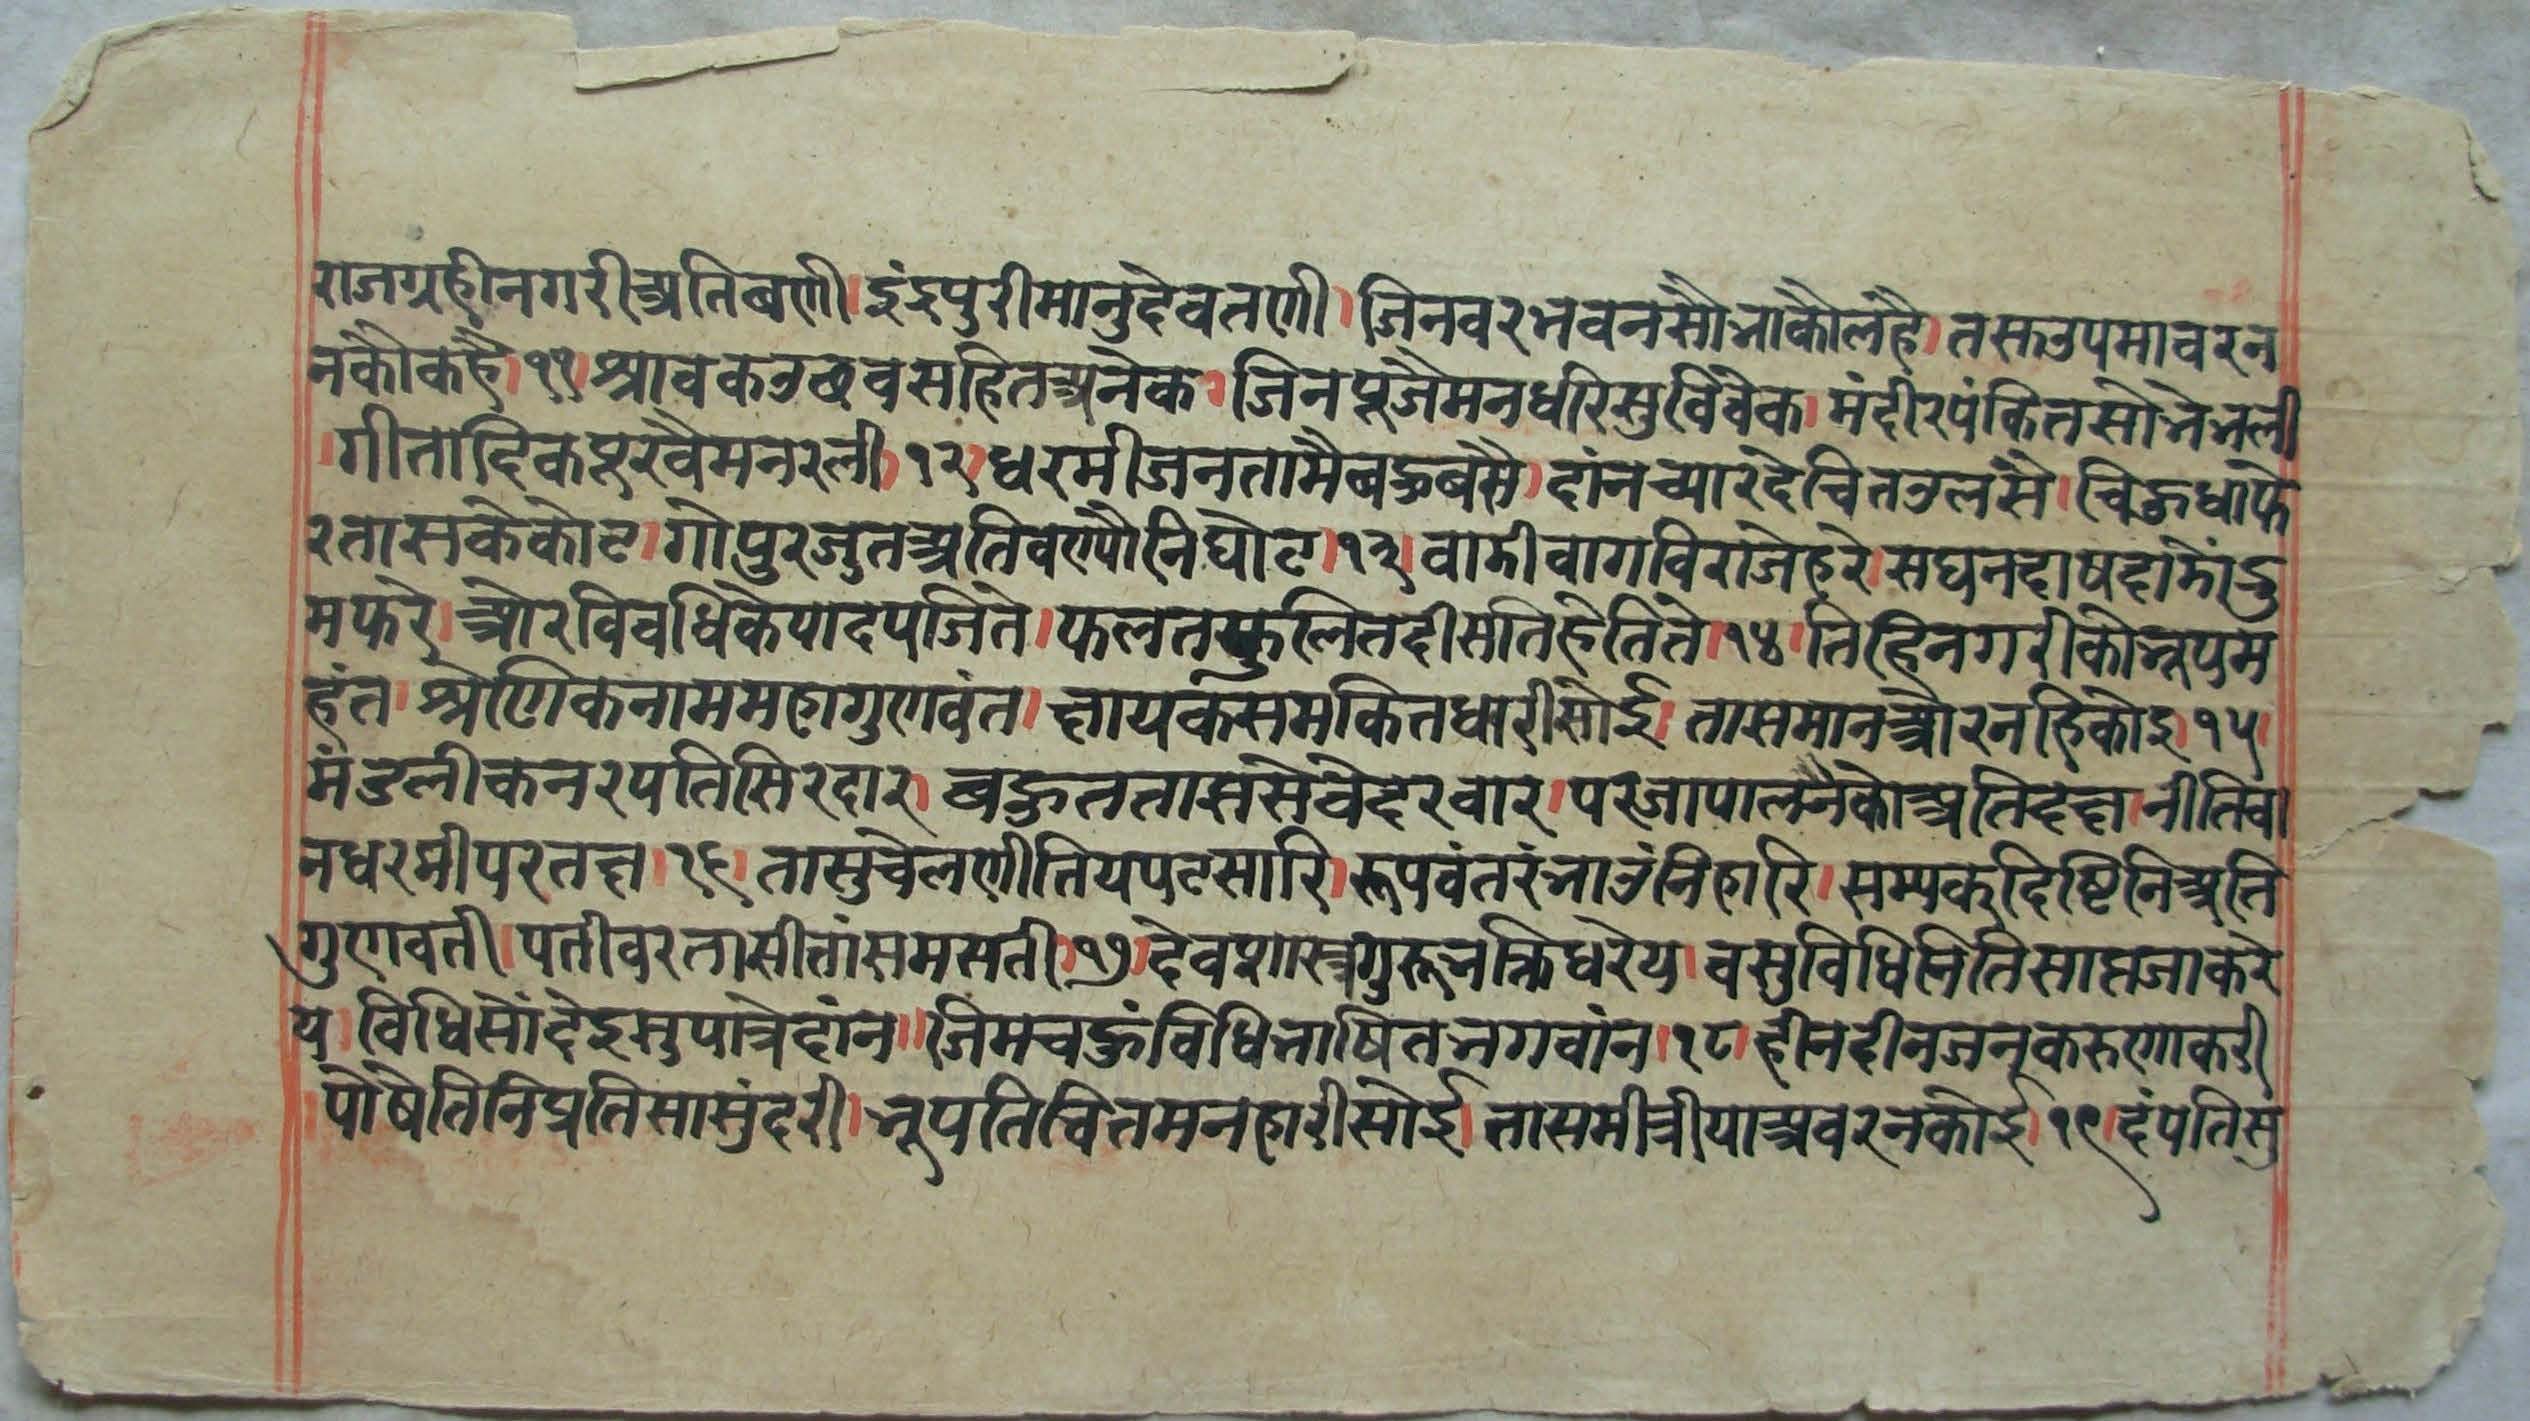 राजग्रहीनगरीअतिबणी।इंद्रपुरीमानुदेवतणी।जिनवरभवनसौभाकौलहै।तसउपमावरन
नकौकहै।११।श्रावकउछवसहितअनेक।जिनपूजैमनधरिसुविवेक।मंदीरपंकितसोभेभली
।गीतादिकपूरवैमनरली।१२।धरमीजनतामैबहुबसै।दांनच्यारदेचितउलसै।चिहुधांफे
रतासकेकोट।गोपुरजुतअतिवण्यौनिघोट।१३।वाडीवागविराजेहरे।सघनदाषदाडोंद्रु
मफरे।औरविवधिकेपादपजिते।फलतफुलितदीसतिहैतिते।१४।तिहिनगरीकोभूपम
हंत।श्रेणिकनाममहागुणवंत।क्षायकसमकितधारीसोई।तासमानऔरनहिकोइ।१५।
मंडलीकनरपतिसिरदार।बहुतताससेवेदरवार।परजापालनैकोअतिदक्ष।नीतिवा
नधरमीपरतक्ष।१६।तासुचेलणीतियपटसारि।रूपवंतरंभाउंनिहारि।सम्यकदिष्टिनिअति
गुणवती।पतीवरतासीतांसमसती।१७।देवशास्त्रगुरूभक्तिधरेय।वसुविधिनितिसापूजाकरे
य।विधिसौंदेइसुपात्रेदांन॥जिमचहुंविधिभाषितभगवांन।१८।हीनदीनजनकरुणाकरी
।पोषैतिनिप्रतिसासुंदरी।भूपतिचितमनहारीसोई।तासमीत्रीयाअवरनकोई।१९।दंपतिसु